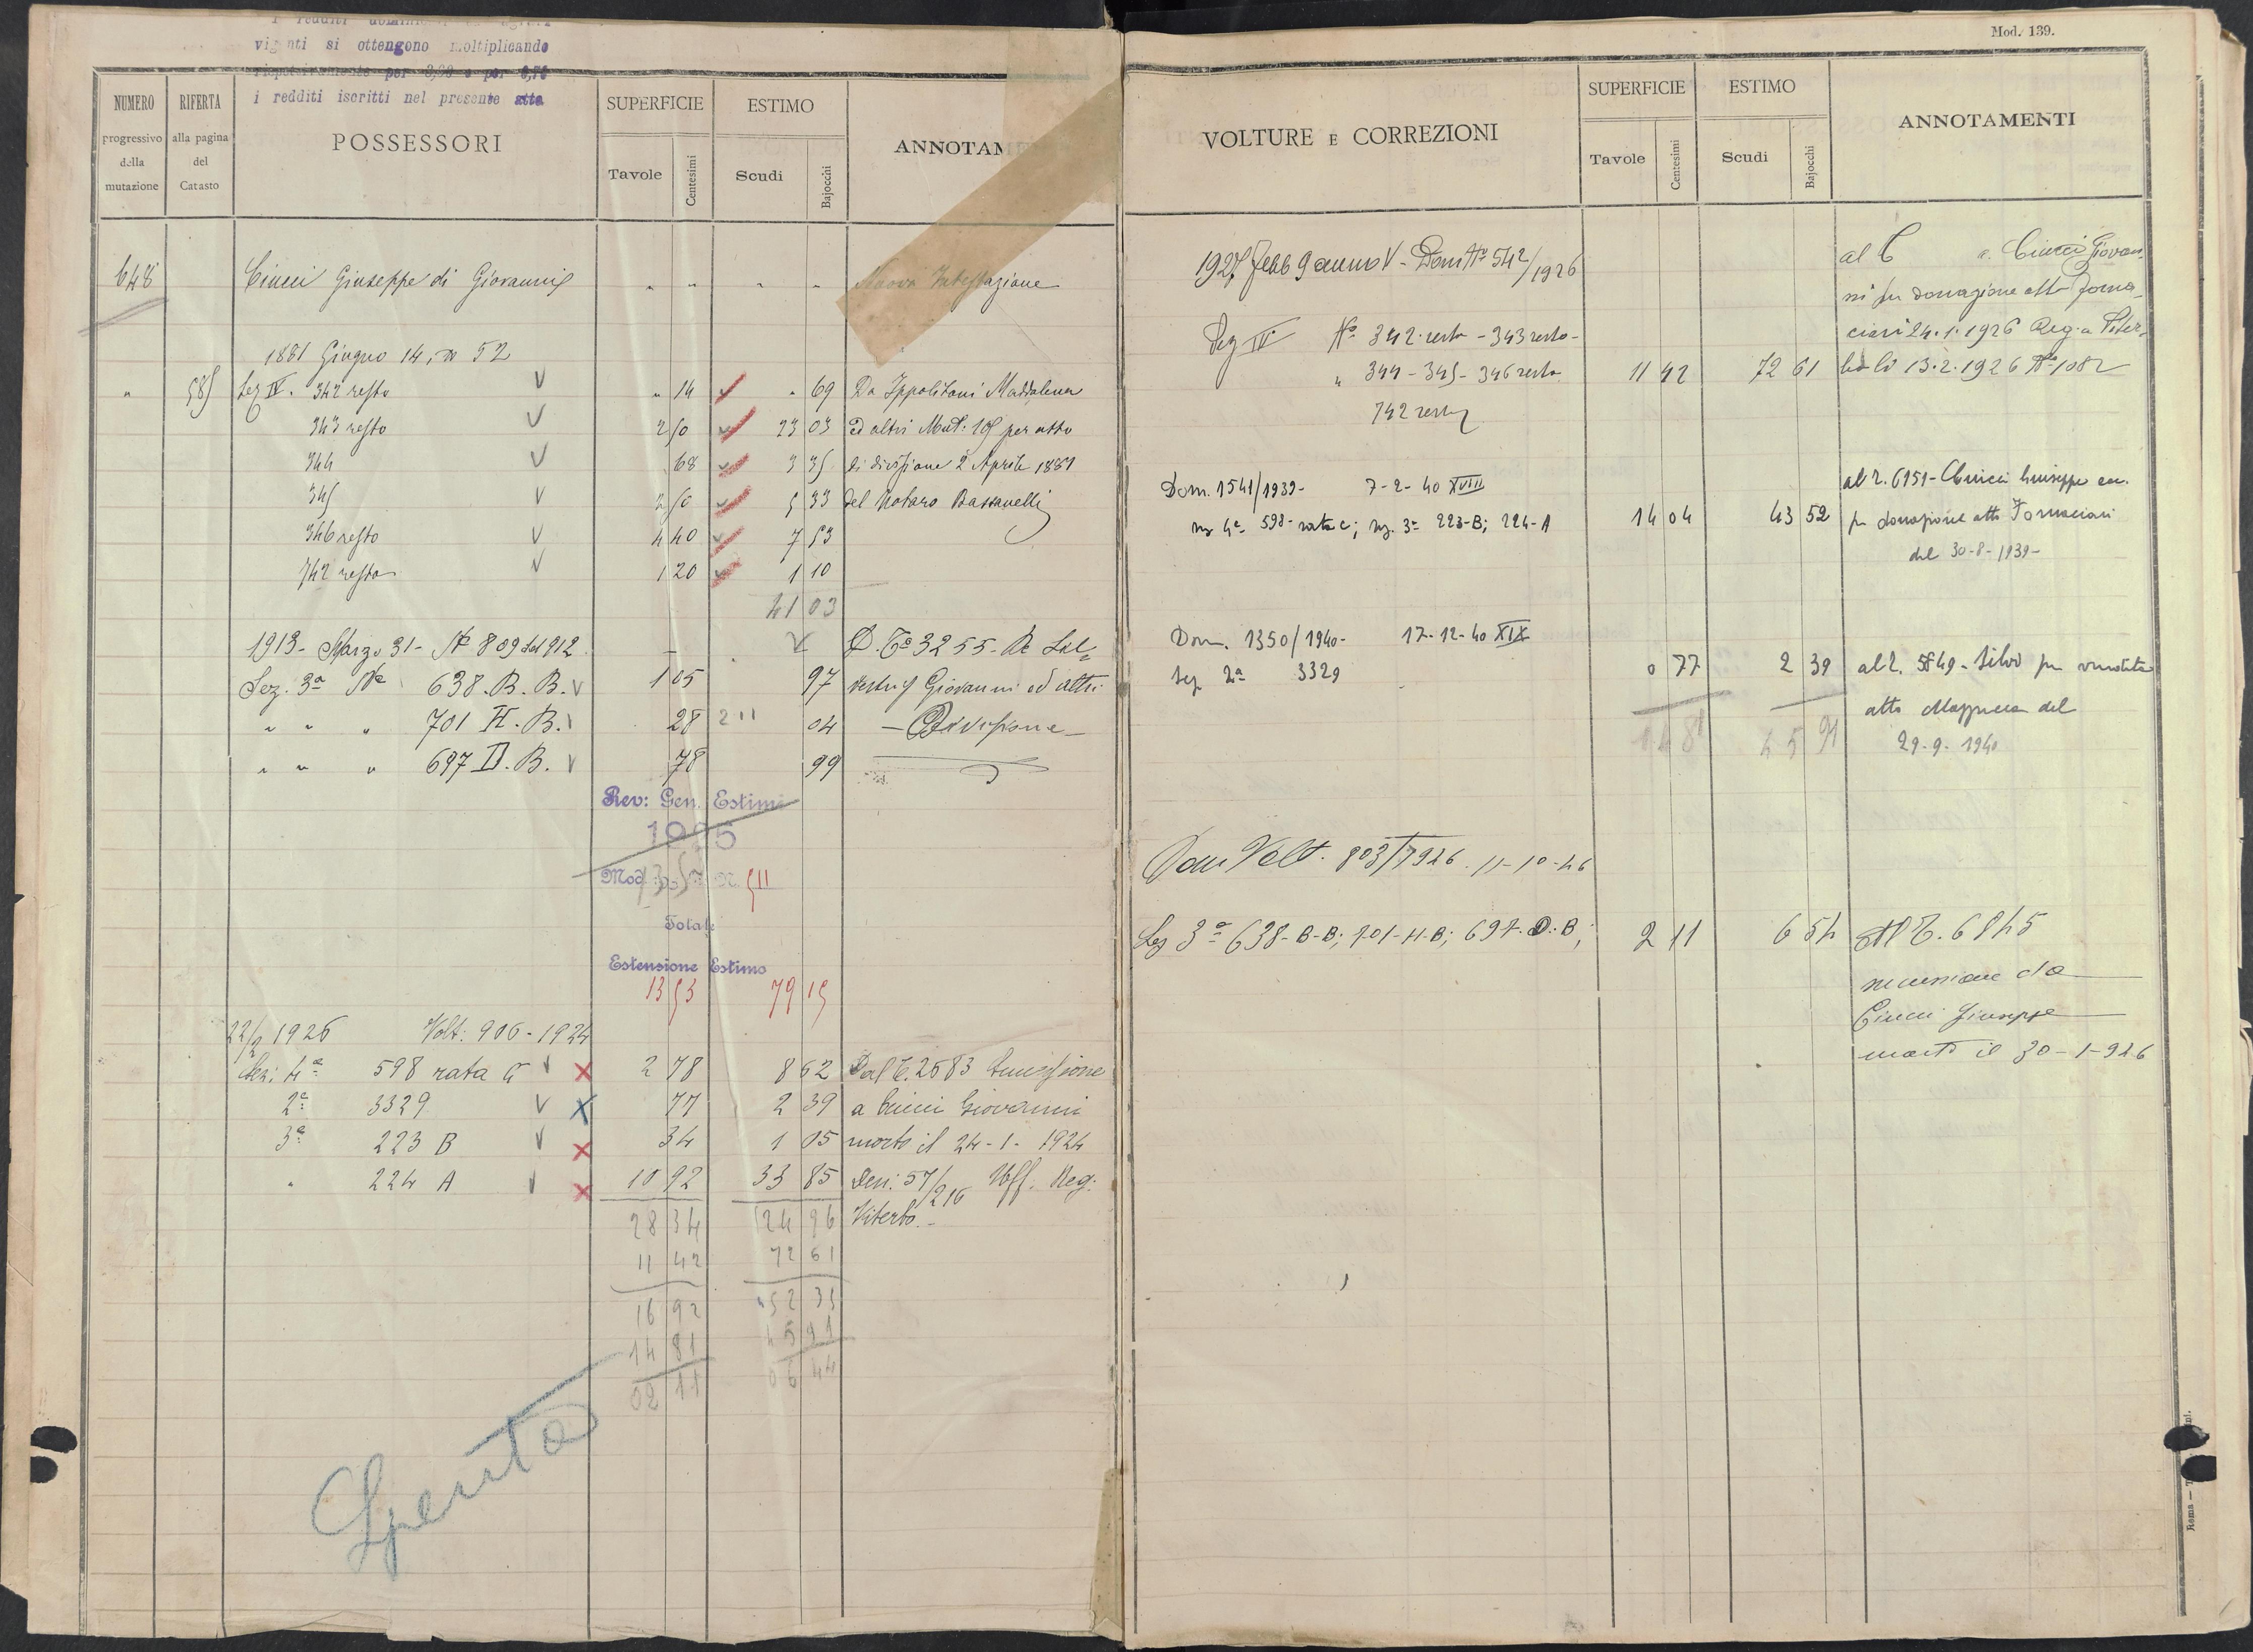 vigenti si ottengono moltiplicando
rispettivamente per 3,30 e per 0,70
i redditi iscritti nel presente atto
NUMERO
progressivo
della
mutazione
RIFERTA
alla pagina
del
Catasto
POSSESSORI
SUPERFICIE
Tavole
Centesimi
ESTIMO
Scudi
Bajocchi
ANNOTAM
648 Ciucci Giuseppe di Giovanni " " " " Nuova Intestazione
1881 Giugno 14, N 52
" 585 Sez IV. 342 resto V " 14 " 69 Da Ippolitoni Maddalena
343 resto V 2 50 23 03 ed altri Mut: 105 per atto
344 V 68 3 35 di divisione 2 Aprile 1881
345 V 2 50 5 33 del Notaro Bassanelli
346 resto V 4 40 7 53
742 resto V 1 20 1 10
41 03
1913 - Marzo 31 - N° 809 del 912 D. To 3255 - De Sal=
Sez. 3a N° 638. B. B. V 1 05 97 vestri Giovanni ed altri
" " " 701 H. B. V 28 2 11 04 - Divisione -
" " " 697 D. B. V 78 99
Rev: Gen. Estimi
Mod N. 511
Totale
Estensione Estimo
13 53 79 15
22/2 1926 Volt: 906 - 1924
Sez: 4a 598 rata C V X 2 78 8 62 Dal T. 2683 Successione
2a 3329 V X 77 2 39 a Ciucci Giovanni
3a 223 B V X 34 1 05 morto il 24 - 1 - 1924
" 224 A V X 10 92 33 85 Den: 57/216 Uff. Reg.
28 34 124 96 Viterbo. -
11 42 72 61
16 92 52 35
14 81 45 91
02 11 06 44
Spenta
Mod. 139.
VOLTURE E CORREZIONI
SUPERFICIE
Tavole
Centesimi
ESTIMO
Scudi
Bajocchi
ANNOTAMENTI
1927 Febb 9 anno V - Dom N° 542/1926 al T a Ciucci Giovan
ni per donazione atto Forna-
Sez IV N° 342 resto - 343 resto - ciari 24.1.1926 Reg. a Viter-
" 344 - 345 - 346 resto 11 42 72 61 bo lo 13.2.1926 N° 1082
742 resto
Dom. 1541/1939 - 7-2-40 XVIII al T. 6151 - Ciucci Giuseppe
sez 4a 598 - rata c; sez. 3a 223-B; 224-A 14 04 43 52 per donazione atto Fornaciari
del 30-8-1939 -
Dom. 1350/1940 - 17-12-40 XIX
Sez 2a 3329 0 77 2 39 al T. 5849 - Silvi per vendita
14 81 45 91 atto Mazzucca del
29-9-1940
Dom Volt. 803/1926 11-10-46
Sez 3a 638-B-B; 701-H-B; 697-D-B; 2 11 6 54 al T. 6845
successione da
Ciucci Giuseppe
morto il 30-1-926
Roma —